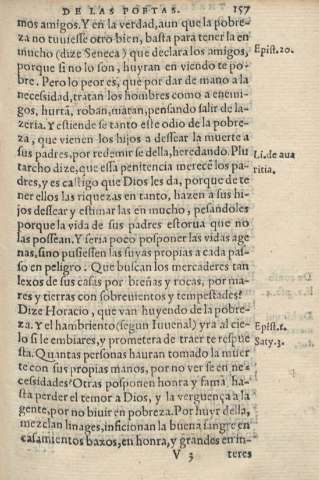 DE LAS POETAS. 157
mos amigos. Y en la verdad, aun que la pobre-
za no tuuiesse otro bien, basta para tener la en
mucho (dize Seneca) que declara los amigos, Epist. 20.
porque si no lo son, huyran en viendo te po-
bre. Pero lo peor es, que por dar de mano a la
necessidad, tratan los hombres como a enemi-
gos, hurtã, roban, matan, pensando salir de la-
zeria. Y estiende se tanto este odio de la pobre-
za, que vienen los hijos a dessear la muerte a
sus padres, por redemir se della, heredando. Plu Li. de aua
tarcho dize, que essa penitencia merecẽ los pa- ritia.
dres, y es castigo que Dios les da, porque de te
ner ellos las riquezas en tanto, hazen a sus hi-
jos dessear y estimar las en mucho, pesandoles
porque la vida de sus padres estorua que no
las posséan. Y seria poco posponer las vidas age
nas, sino pusiessen las suyas propias a cada pas-
so en peligro. Que buscan los mercaderes tan
lexos de sus casas por breñas y rocas, por ma-
res y tierras con sobreuientos y tempestades?
Dize Horacio, que van huyendo de la pobre-
za. Y el hambriento (segun Iuuenal) yra al cie- Epist. 1.
lo si le embiares, y prometera de traer te respue Saty. 3.
sta. Quantas personas hauran tomado la muer
te con sus propias manos, por no ver se en ne-
cessidades? Otras posponen honra y fama, ha-
sta perder el temor a Dios, y la verguença a la
gente, por no biuir en pobreza. Por huyr della,
mezclan linages, inficionan la buena sangre en
casamientos baxos, en honra, y grandes en in-
V 3 teres